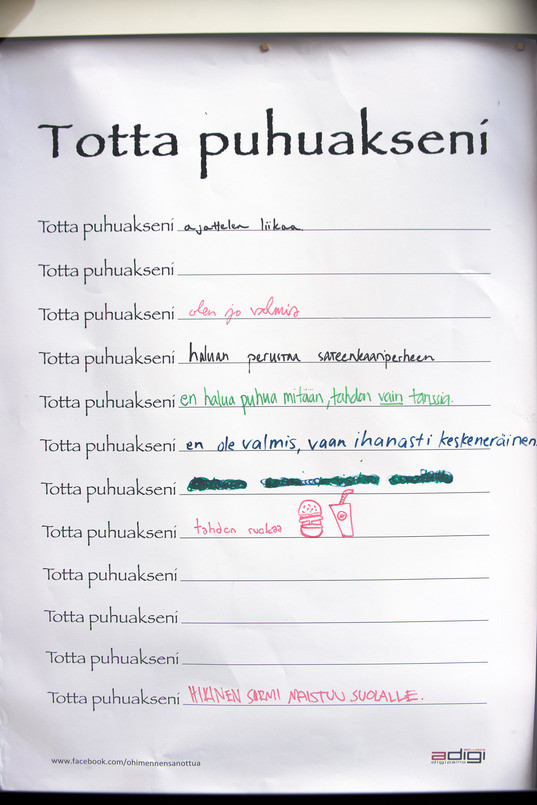 Totta puhuakseni
Totta puhuakseni ajattelen liikaa.
Totta puhuakseni
Totta puhuakseni olen jo valmis
Totta puhuakseni haluan perustaa sateenkaariperheen
Totta puhuakseni en halua puhua mitään, tahdon vain tanssia.
Totta puhuakseni en ole valmis, vaan ihanasti keskeneräinen.
Totta puhuakseni
Totta puhuakseni tahdon ruokaa
Totta puhuakseni
Totta puhuakseni
Totta puhuakseni
Totta puhuakseni HIKINEN SORMI MAISTUU SUOLALLE.
www.facebook.com/ohimennensanottua
adigi
digipaino